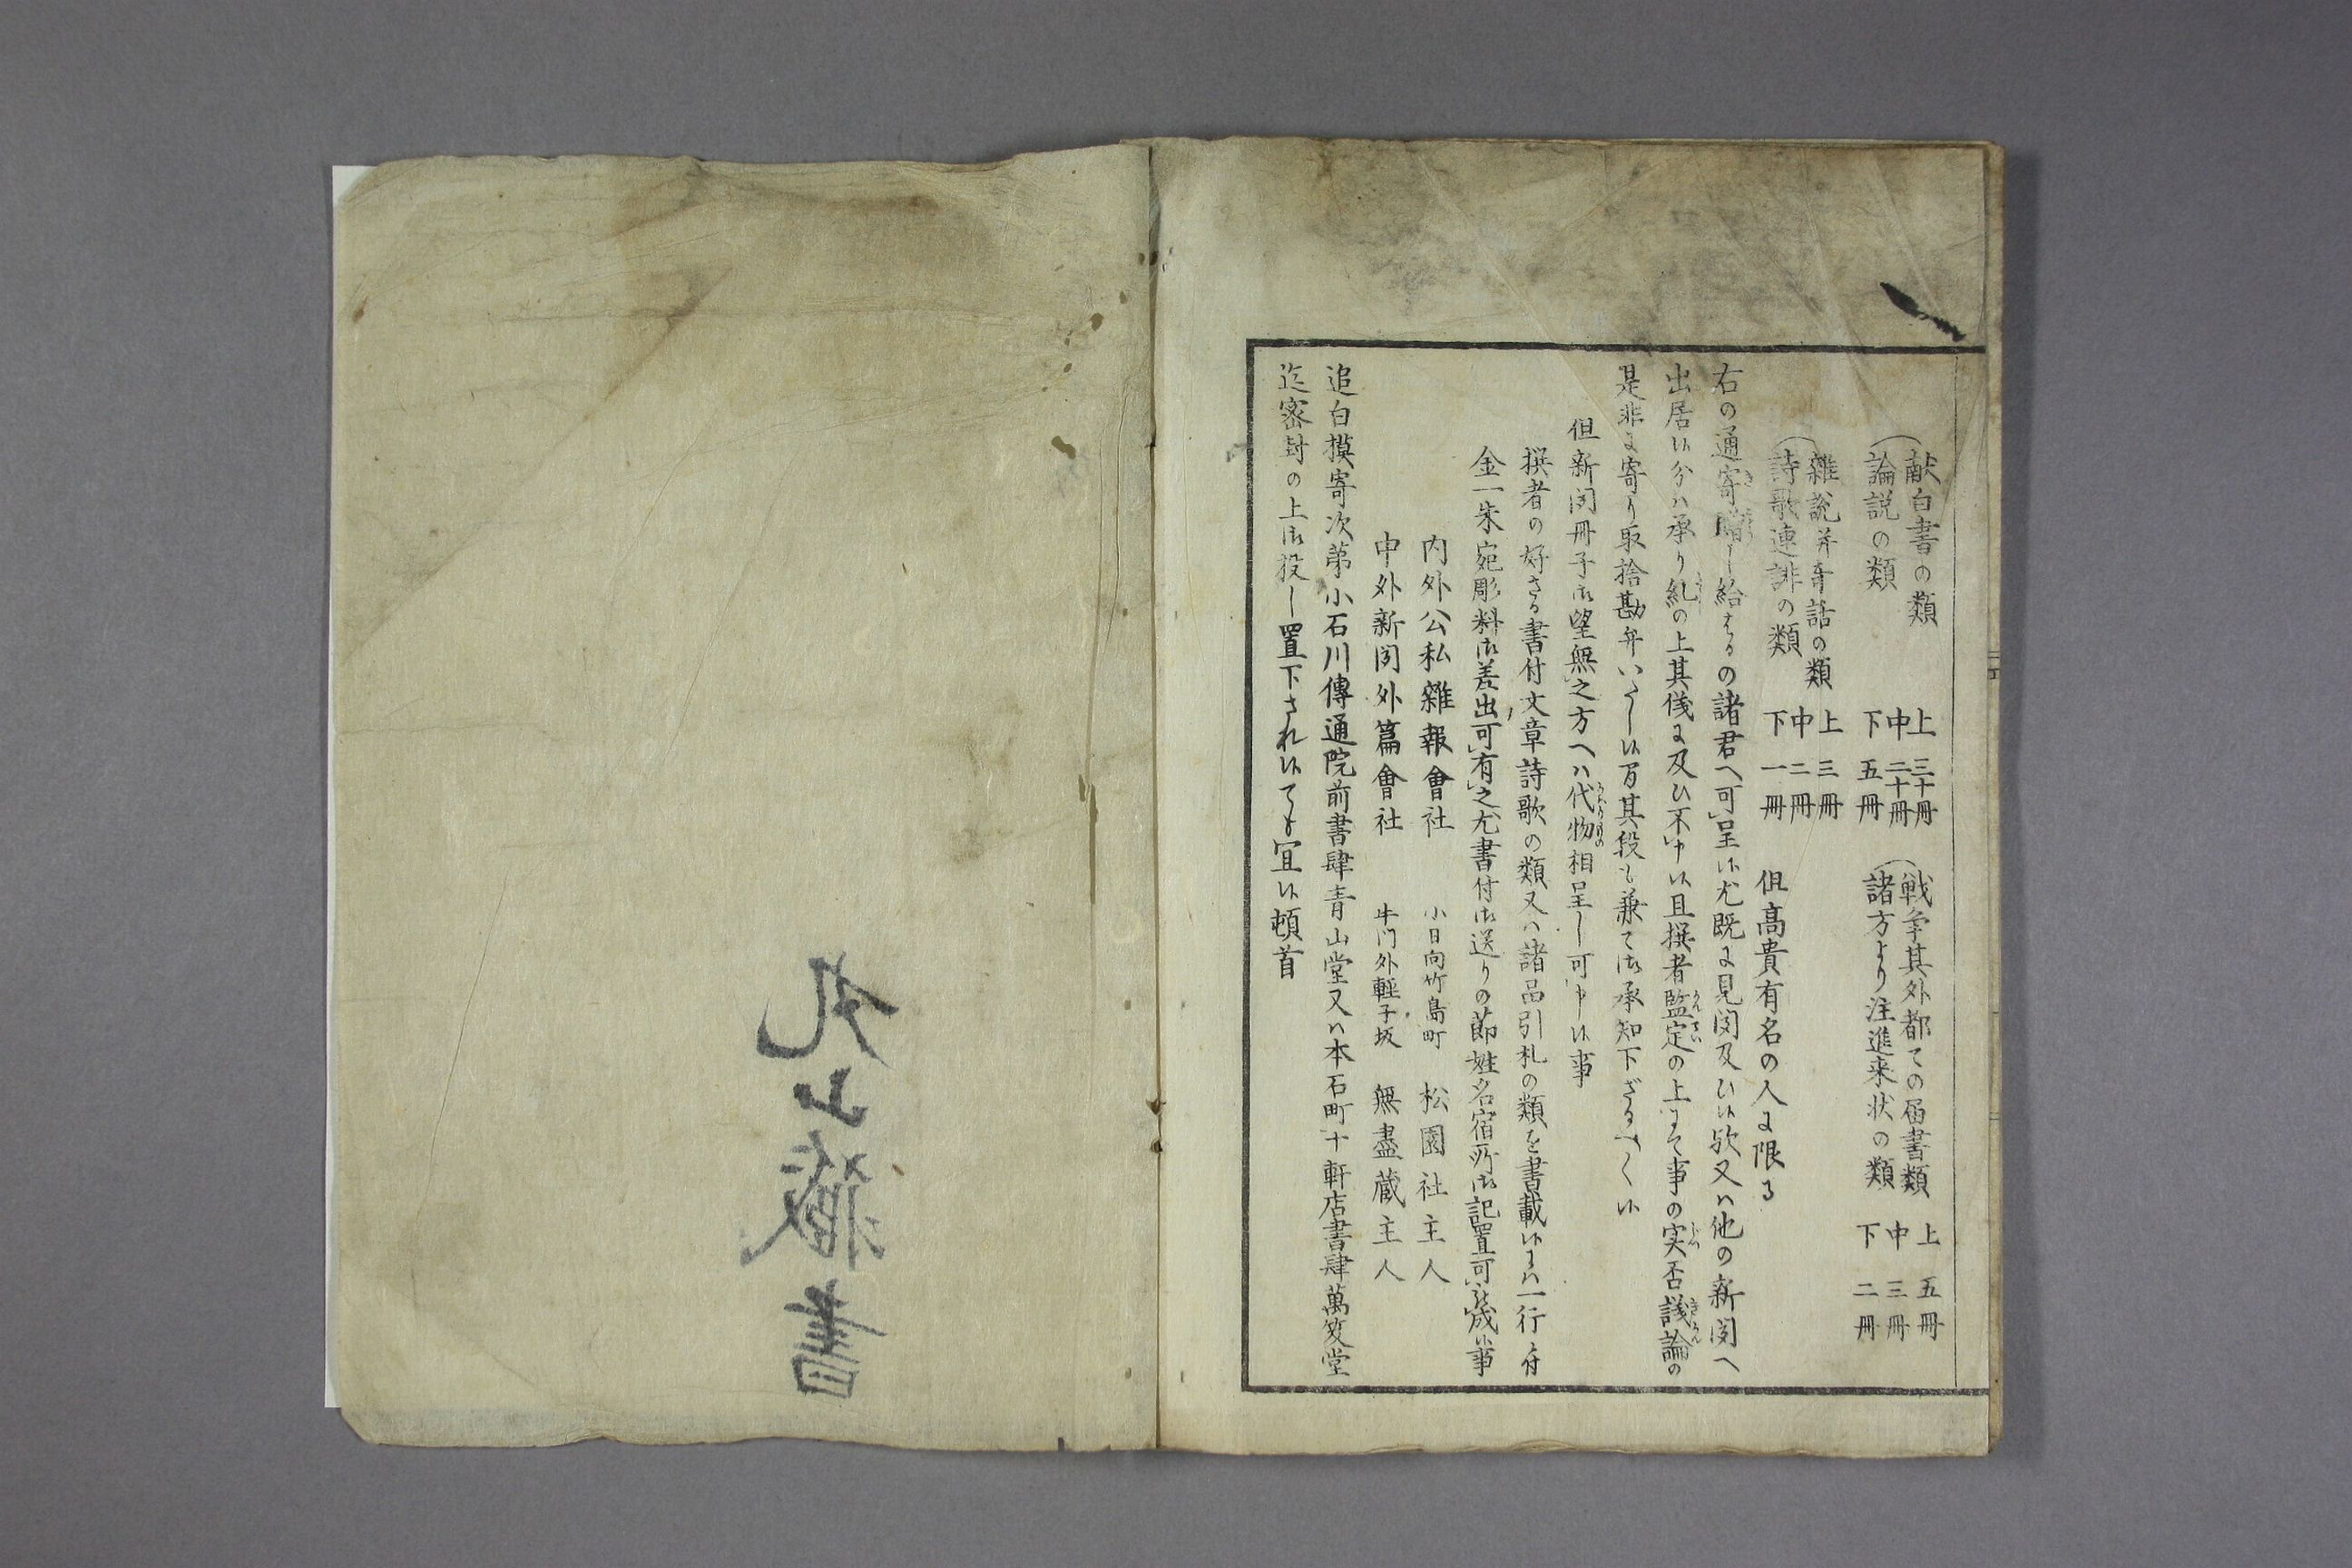 献白書の類
論説の類
上 三十冊
中 二十冊
下 五冊
戦争其外都ての届書類
諸方より注進来状の類
上 五冊
中 三冊
下 二冊
雑説并奇話の類
詩歌連誹の類
上 三冊
中 二冊
下 一冊
但高貴有名の人に限る
右の通寄贈し給はるの諸君へ可呈候尤既に見聞及ひ候歟又ハ他の新聞へ
出居候分ハ承り糺の上其儀に及ひ不申候且撰者監定の上にて事の実否議論の
是非に寄り取捨勘弁いたし候間其段も兼て御承知下さるへく候
但新聞冊子御望無之方へハ代物相呈し可申候事
撰者の好さる書付文章詩歌の類又ハ諸品引札の類を書載候にハ一行ニ付
金一朱宛彫料御差出可有之尤書付御送りの節姓名宿所御記置可被成候事
内外公私雑報會社 小日向竹島町 松園社主人
中外新聞外篇會社 牛門外軽子坂 無盡蔵主人
追白摸寄次第小石川傳通院前書肆青山堂又ハ本石町十軒店書肆萬笈堂
迄密封の上御投し置下され候ても宜候頓首
丸山蔵書